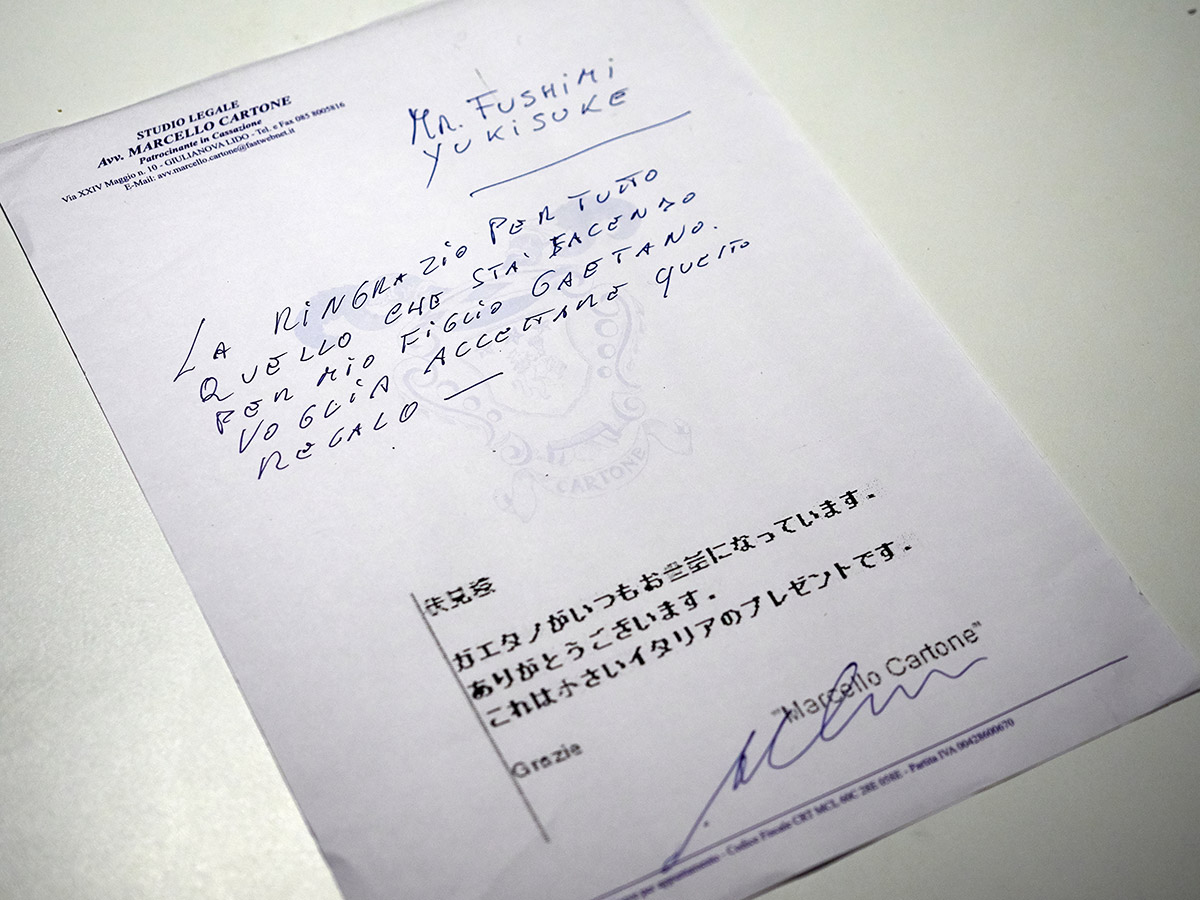 STUDIO LEGALE
Avv. MARCELLO CARTONE
Patrocinante in Cassazione
Via XXIV Maggio n. 10 - GIULIANOVA LIDO - Tel. e Fax 085 8005816
E-Mail: avv.marcello.cartone@fastwebnet.it
MR. FUSHIMI
YUKISUKE
LA RINGRAZIO PER TUTTO
QUELLO CHE STA' FACENDO
PER MIO FIGLIO GAETANO.
VOGLIA ACCETTARE QUESTO
REGALO —
CARTONE
伏見様
ガエタノがいつもお世話になっています。
ありがとうございます。
これは小さいイタリアのプレゼントです。
"Marcello Cartone"
Grazie
per appuntamento - Codice Fiscale CRT MCL 60C 28E 058E - Partita IVA 00428600670